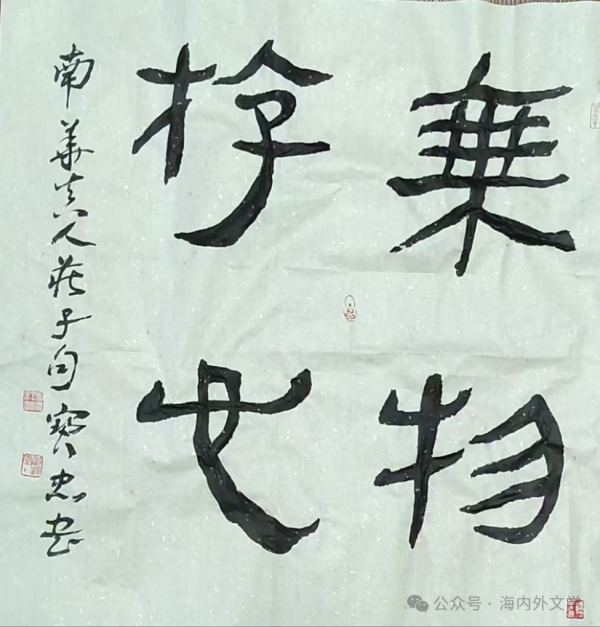 乘物
游心
南華真人莊子句 寶忠书
公众号 · 海内外文学